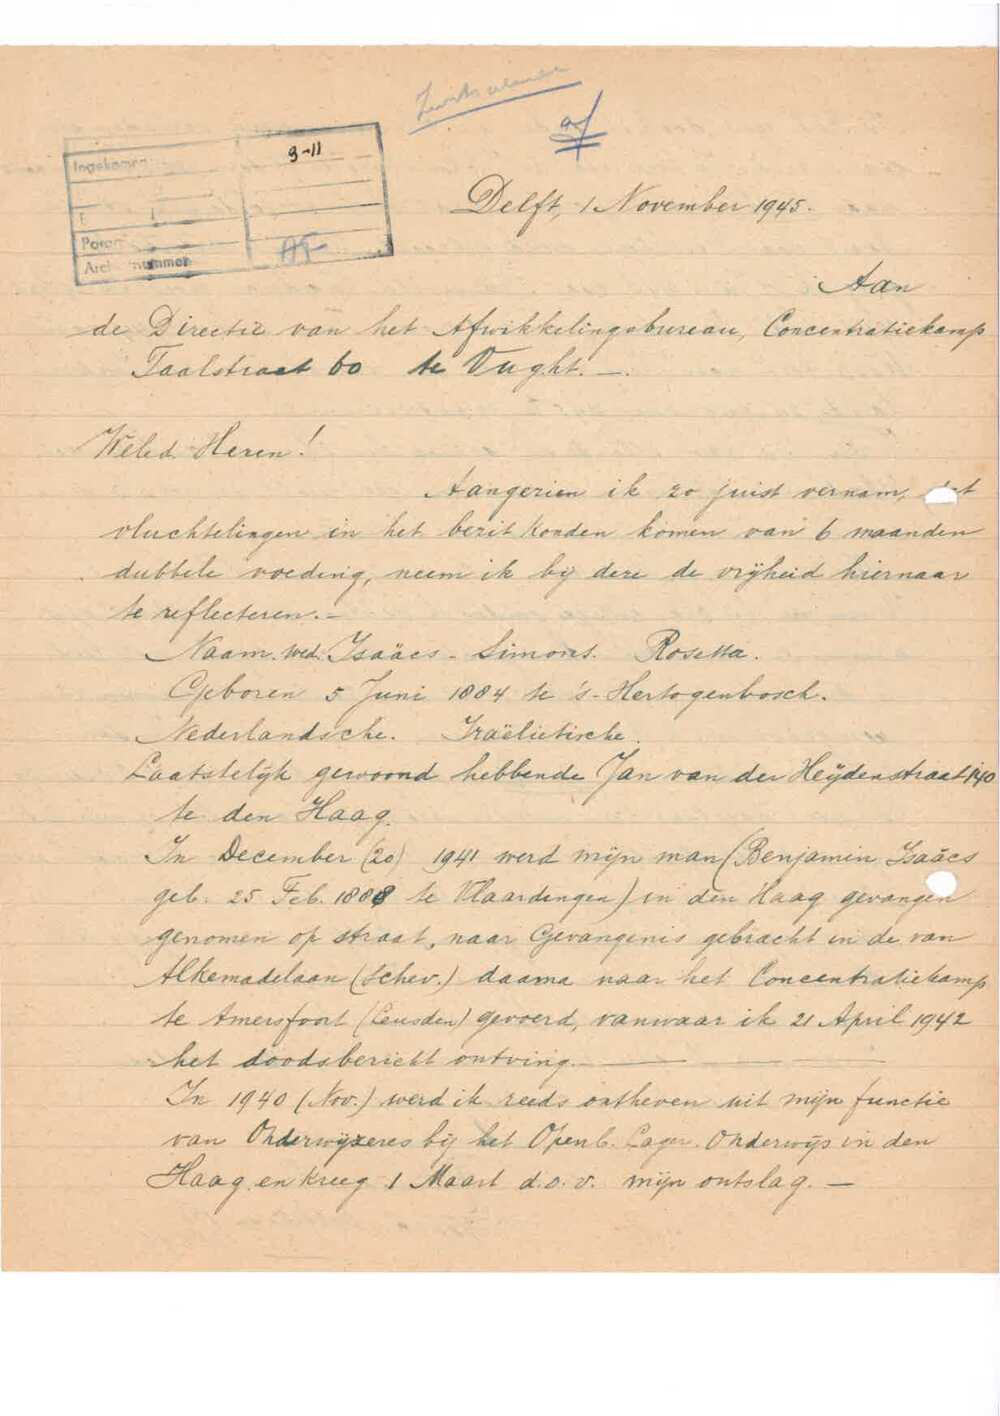 Ingekomen 9-11
Archiefnummer
Delft, 1 November 1945.
Aan
de Directie van het Afwikkelingsbureau, Concentratiekamp
Taalstraat 60 te Vught. —
Weled. Heren!
Aangezien ik zo juist vernam, dat
vluchtelingen in het bezit konden komen van 6 maanden
dubbele voeding, neem ik bij deze de vrijheid hiernaar
te reflecteren. —
Naam. wed. Isaäcs - Simons. Rosetta.
Geboren 5 Juni 1884 te 's-Hertogenbosch.
Nederlandsche. Israëlietische.
Laatstelijk gewoond hebbende Jan van der Heijdenstraat 140
te den Haag.
In December (20) 1941 werd mijn man (Benjamin Isaäcs
geb. 25 Feb. 1888 te Vlaardingen) in den Haag gevangen
genomen op straat, naar Gevangenis gebracht in de van
Alkemadelaan (Schev.) daarna naar het Concentratiekamp
te Amersfoort (Leusden) gevoerd, vanwaar ik 21 April 1942
het doodsbericht ontving. —
In 1940 (Nov.) werd ik reeds ontheven uit mijn functie
van Onderwijzeres bij het Openb. Lager. Onderwijs in den
Haag, en kreeg 1 Maart d.o.v. mijn ontslag. —